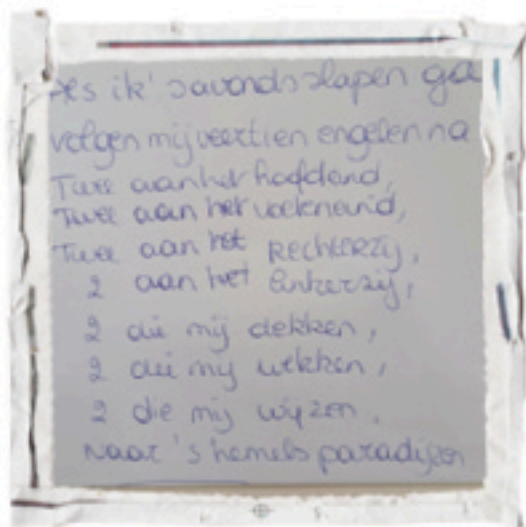 Als ik 's avonds slapen ga
volgen mij veertien engelen na
Twee aan het hoofdeand,
Twee aan het voeteneind,
Twee aan het Rechterzij,
2 aan het linkerzij,
2 die mij dekken,
2 die mij wekken,
2 die mij wijzen,
Naar 's hemels paradijzen